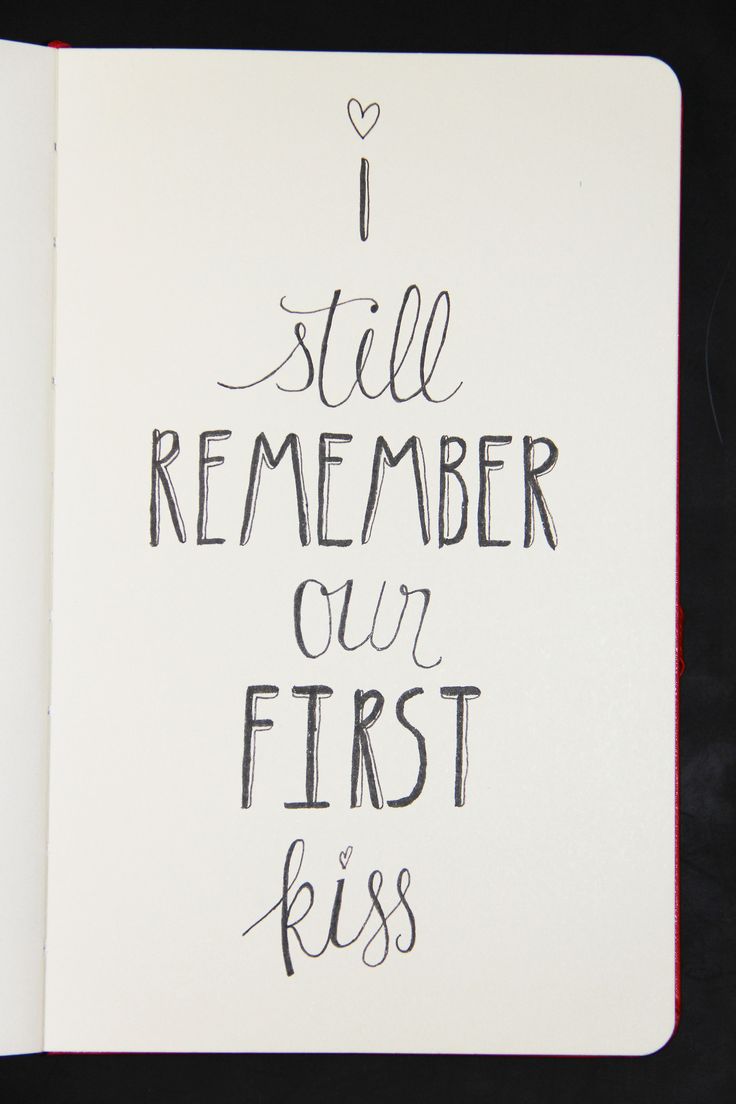 i
still
REMEMBER
our
FIRST
kiss